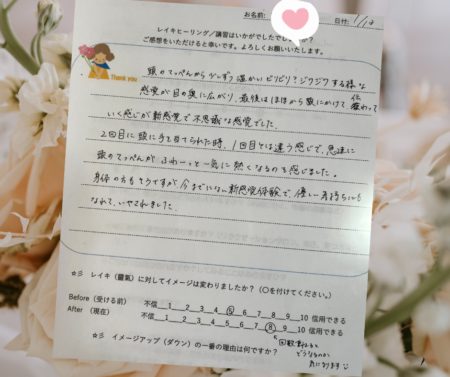 お名前: 日付: 1/18
レイキヒーリング／講習はいかがでしたでしょうか？
ご感想をいただけると幸いです。よろしくお願いいたします。
Thank you
頭のてっぺんから少しずつ温かいビリビリ？ジワジワする様な
感覚が目の奥に広がり、最後はほほから歯にかけて伝わって
いく感じが新感覚で不思議な感覚でした。
2回目に頭に手を当てられた時、1回目とは違う感じで、急速に
頭のてっぺんが、ふわーっと一気に熱くなるのを感じました。
身体の方もそうですが、今までにない新感覚体験で、優しい気持ちにも
なれて、いやされました。
☆彡 レイキ（靈氣）に対してイメージは変わりましたか？（〇を付けてください。）
Before（受ける前） 不信__1__2__3__4__5__6__7__8__9__10 信用できる
After （現在） 不信__1__2__3__4__5__6__7__8__9__10 信用できる
☆彡 イメージアップ（ダウン）の一番の理由は何ですか？
回数重ねると
どうなるのか
気になります